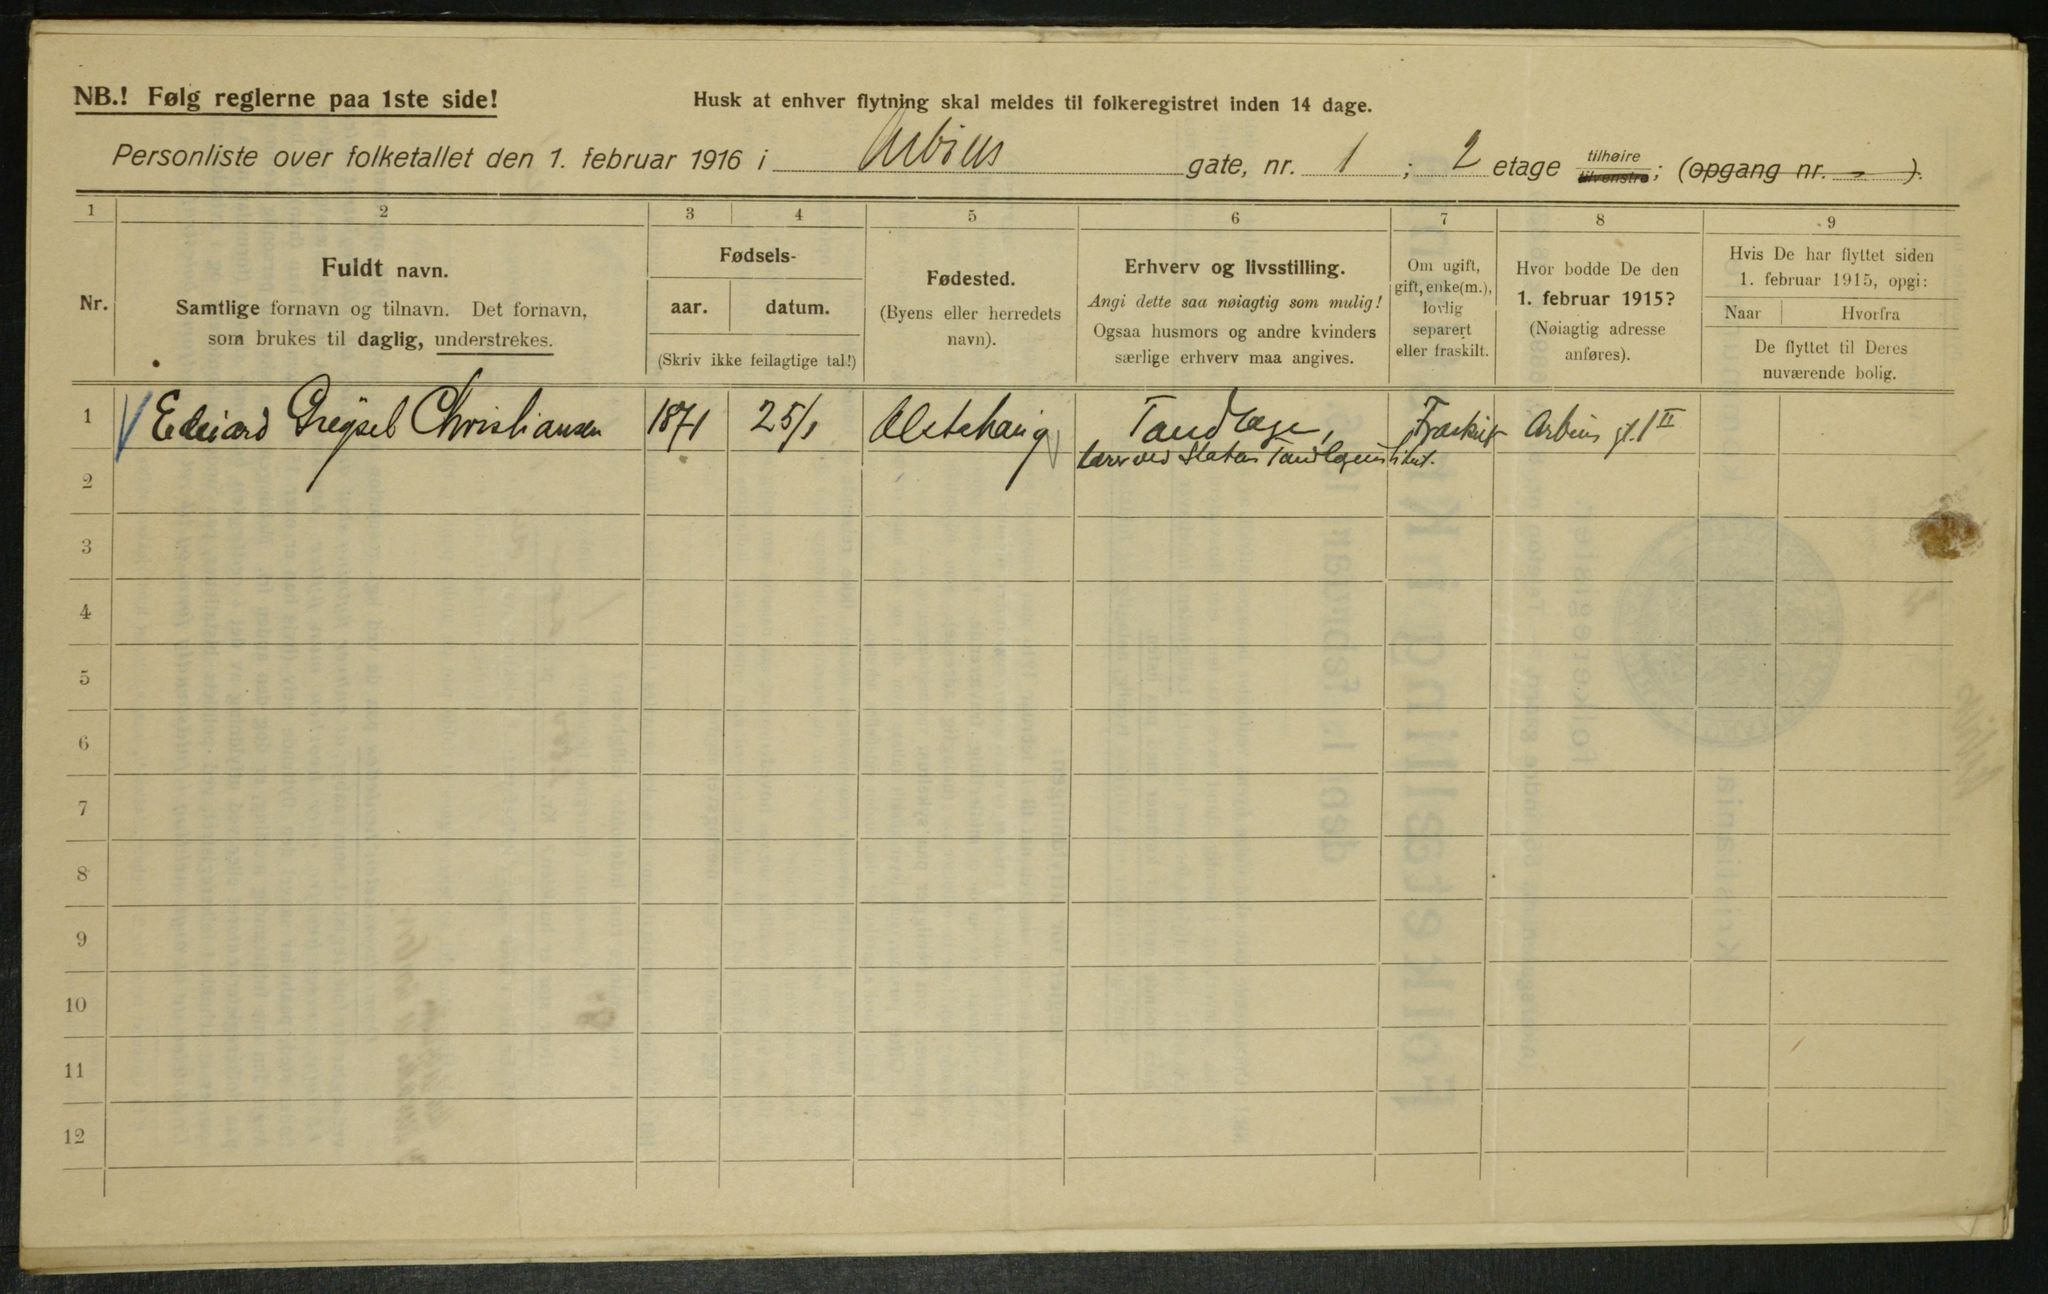 NB.! Følg reglerne paa 1ste side!
Husk at enhver flytning skal meldes til folkeregistret inden 14 dage.
Personliste over folketallet den 1. februar 1916 i Arbins gate, nr. 1; 2 etage tilhøire tilvenstre; (opgang nr. - ).
1 2 3 4 5 6 7 8 9
Nr.
Fuldt navn.
Samtlige fornavn og tilnavn. Det fornavn,
som brukes til daglig, understrekes.
Fødsels-
aar. datum.
(Skriv ikke feilagtige tal!)
Fødested.
(Byens eller herredets
navn).
Erhverv og livsstilling.
Angi dette saa nøiagtig som mulig!
Ogsaa husmors og andre kvinders
særlige erhverv maa angives.
Om ugift,
gift, enke(m.),
lovlig
separert
eller fraskilt.
Hvor bodde De den
1. februar 1915?
(Nøiagtig adresse
anføres).
Hvis De har flyttet siden
1. februar 1915, opgi:
Naar Hvorfra
De flyttet til Deres
nuværende bolig.
1 Christiansen 1871 25/1 Tandlæge, Fraskilt Arbins gt. 1 II
lærer ved Statens Tandlægeinstitut.
2
3
4
5
6
7
8
9
10
11
12